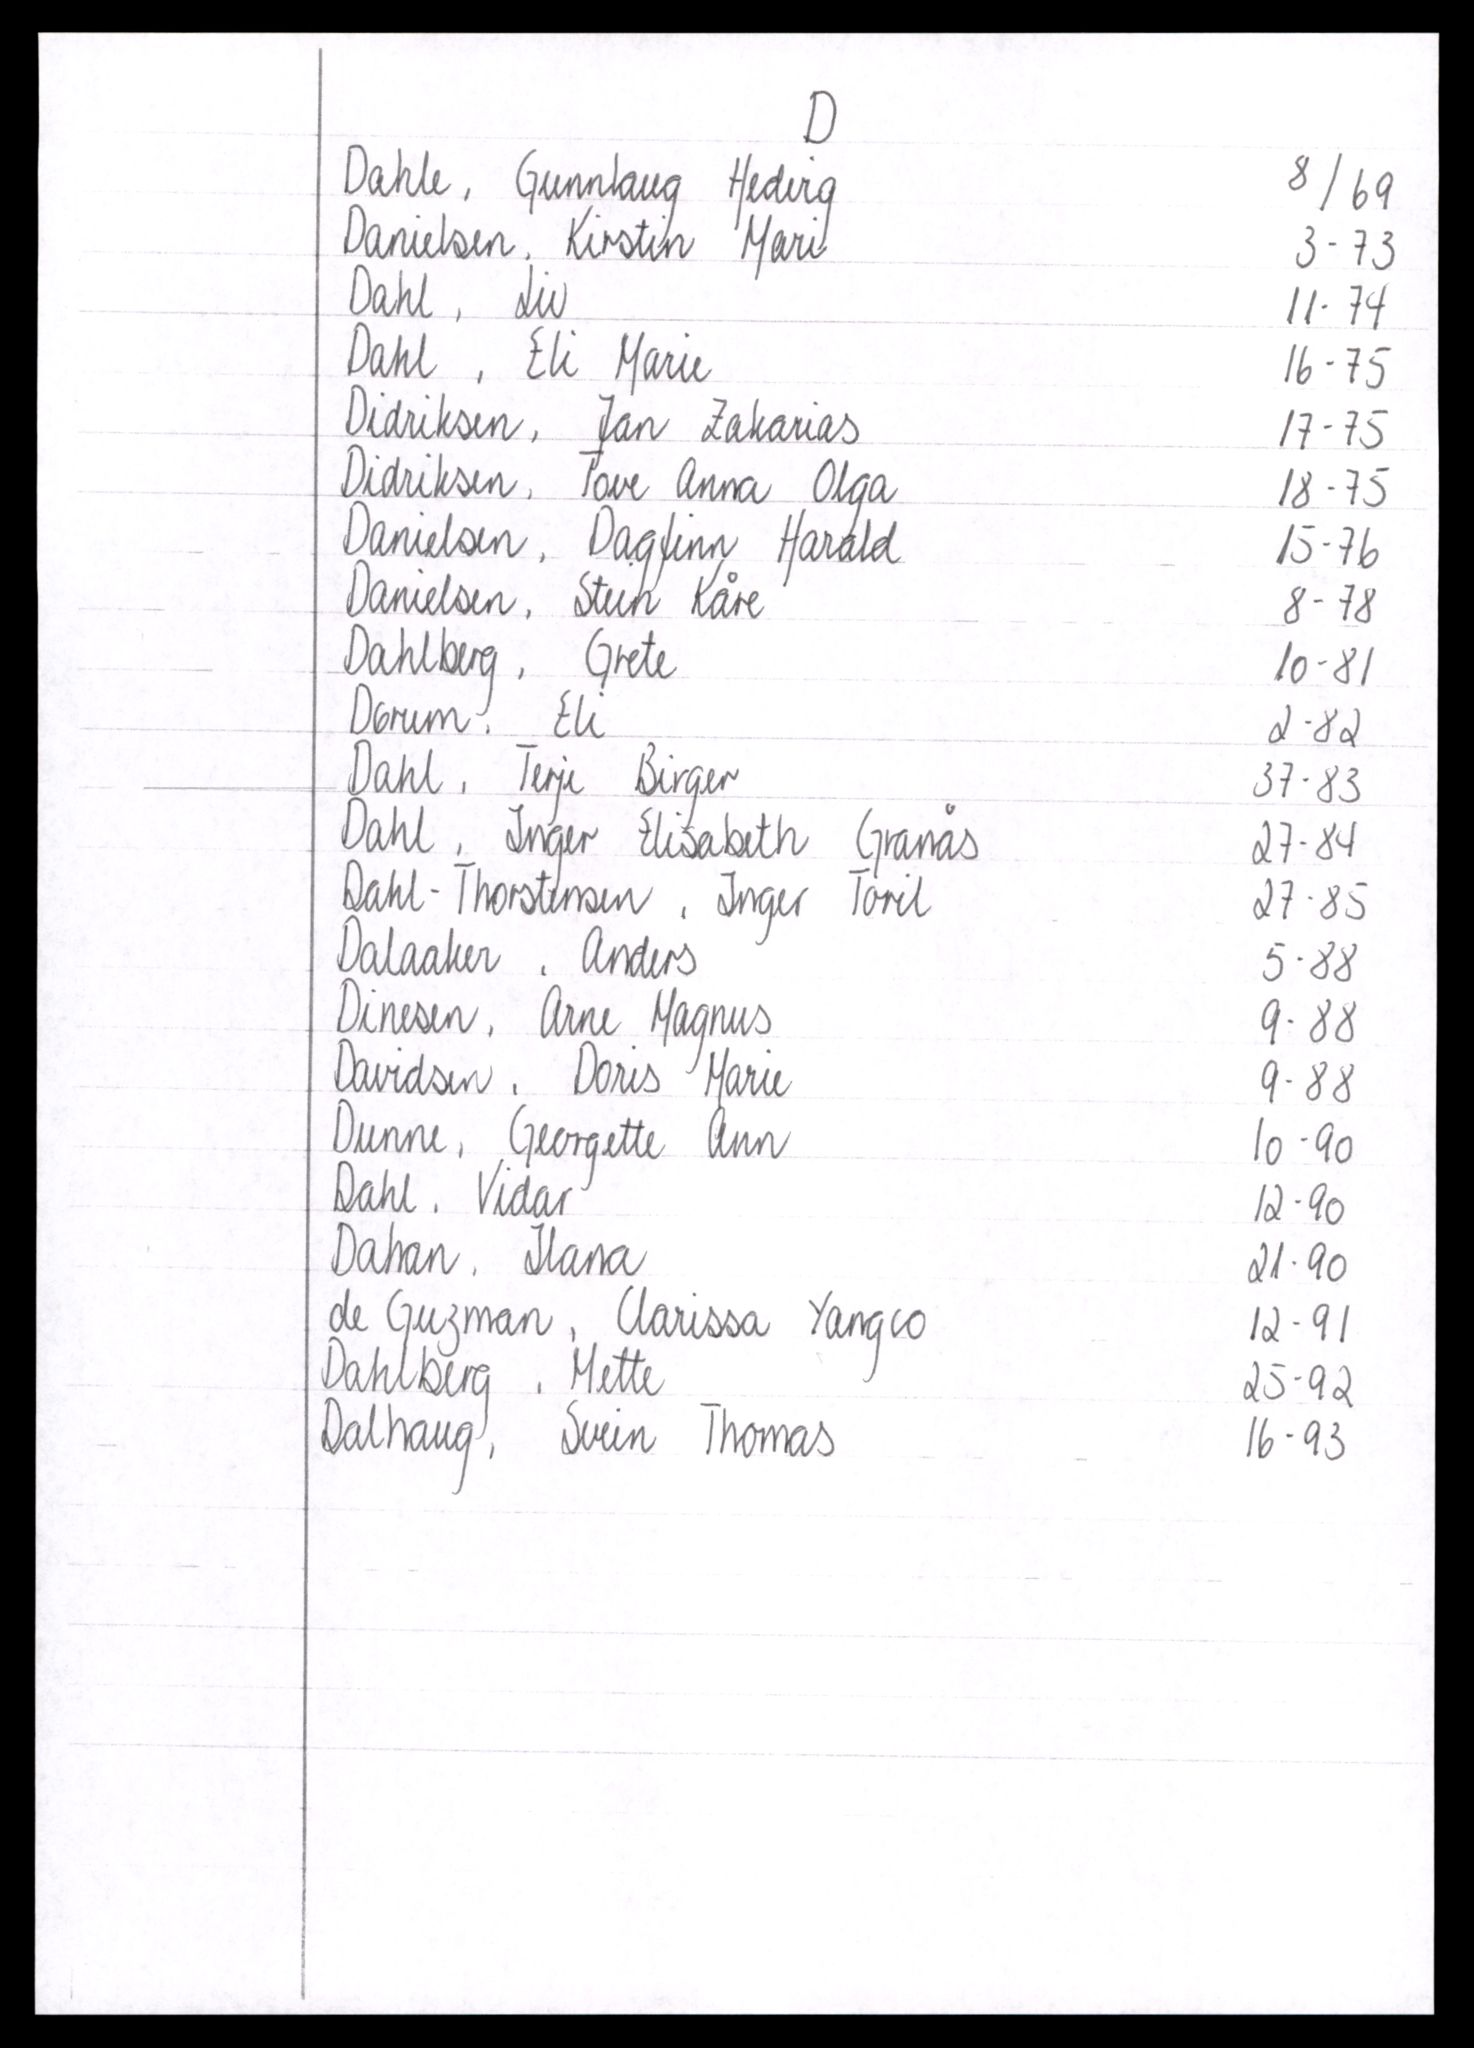 D
Dahle, Gunnlaug Hedvig 8/69
Danielsen, Kirstin Mari 3-73
Dahl, Liv 11-74
Dahl, Eli Marie 16-75
Didriksen, Jan Zakarias 17-75
Didriksen, Tove Anna Olga 18-75
Danielsen, Dagfinn Harald 15-76
Danielsen, Stein Kåre 8-78
Dahlberg, Grete 10-81
Dørum, Eli 2-82
Dahl, Terje Birger 37-83
Dahl, Inger Elisabeth Granås 27-84
Dahl-Thorstensen, Inger Toril 27-85
Dalaaker, Anders 5-88
Dinesen, Arne Magnus 9-88
Davidsen, Doris Marie 9-88
Dunne, Georgette Ann 10-90
Dahl, Vidar 12-90
Dahan, Ilana 21-90
de Guzman, Clarissa Yangco 12-91
Dahlberg, Mette 25-92
Dalhaug, Svein Thomas 16-93